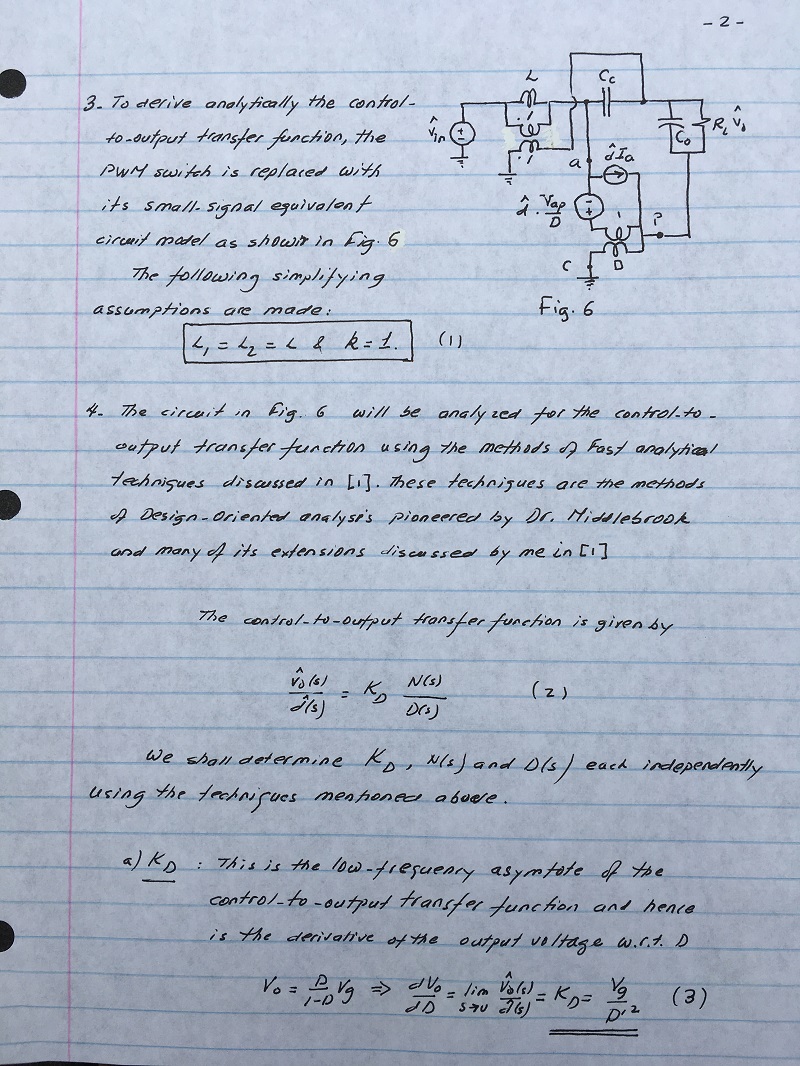 - 2 -
3- To derive analytically the control-
to-output transfer function, the
PWM switch is replaced with
its small-signal equivalent
circuit model as shown in Fig. 6
The following simplifying
assumptions are made:
L₁ = L₂ = L & k = 1. (1)
L
Cc
v̂in
1
1
1
a
d̂Ia
Co
RL
v̂o
d̂ · Vap/D
1
D
P
C
Fig. 6
4- The circuit in Fig. 6 will be analyzed for the control-to-
output transfer function using the methods of Fast analytical
techniques discussed in [1]. These techniques are the methods
of Design-Oriented analysis pioneered by Dr. Middlebrook
and many of its extensions discussed by me in [1]
The control-to-output transfer function is given by
v̂o(s)/d̂(s) = KD N(s)/D(s) (2)
We shall determine KD, N(s) and D(s) each independently
using the techniques mentioned above.
a) KD : This is the low-frequency asymtote of the
control-to-output transfer function and hence
is the derivative of the output voltage w.r.t. D
Vo = D/1-D Vg ⇒ dVo/dD = lim s→0 v̂o(s)/d̂(s) = KD = Vg/D'² (3)